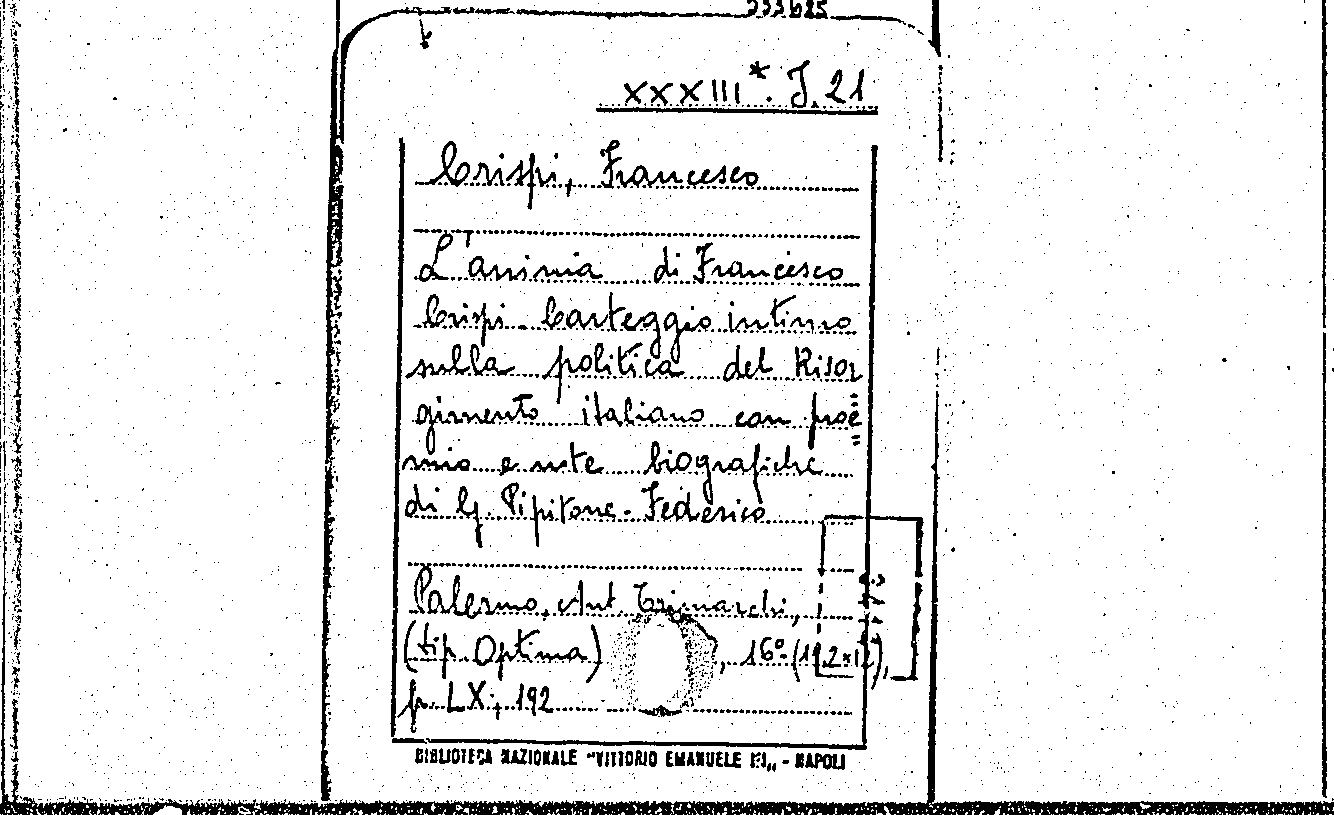 333685
XXXIII*. J. 21
Crispi, Francesco
L'anima di Francesco
Crispi. Carteggio intimo
sulla politica del Risor
gimento italiano con proe=
mio e note biografiche
di G. Pipitone-Federico
Palermo, Ant. Trimarchi,
(tip. Optima) , 16°-(19,2x12),
p. LX, 192
BIBLIOTECA NAZIONALE "VITTORIO EMANUELE III„ - NAPOLI